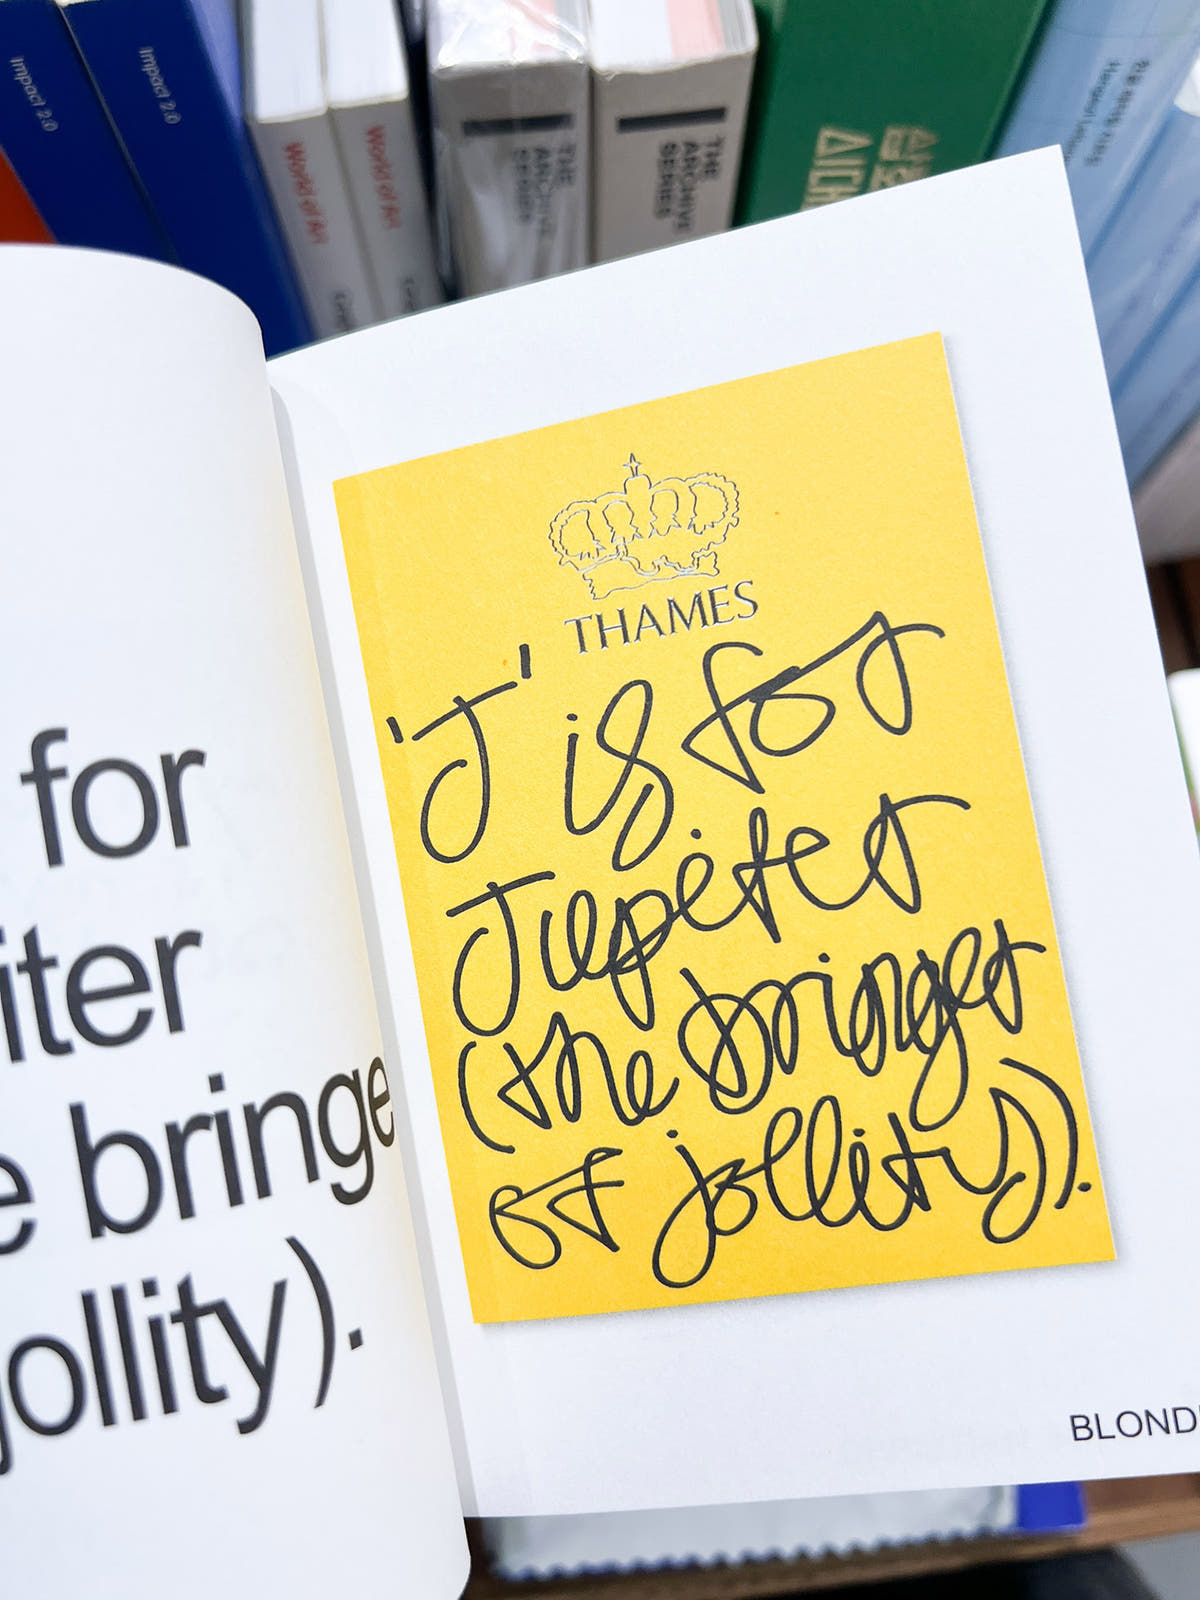 Impact 2.0
Impact 2.0
World of Art
World of Art
THE
ARCHIVE
SERIES
THE
ARCHIVE
SERIES
for
iter
e bringe
jollity).
THAMES
'J' is for
Jupiter
(the bringer
of jollity).
BLOND